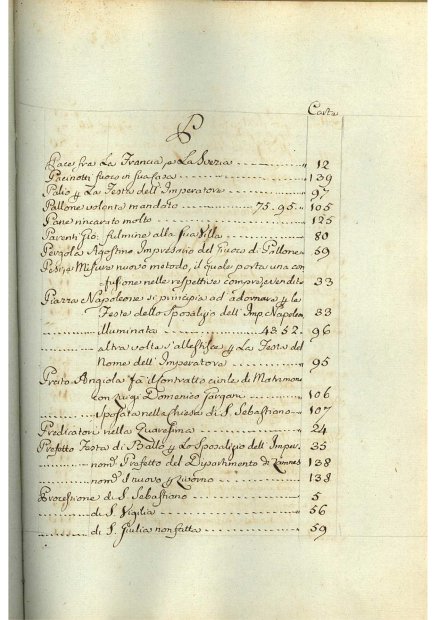 Carta
P
Pace fra La Francia, e La Svezia 12
Pacinotti fuoco in sua casa 139
Palio p La Festa dell'Imperatore 97
Pallone volante mandato 75. 95. 105
Pane rincarato molto 125
Parenti Gio: fulmine alla sua Villa 80
Pergola Agostino Impressario del Giuoco di Pallone 59
Pesi, e Misure nuovo metodo, il quale porta una con
fusione nelle respettive compre, e vendite 33
Piazza Napoleone si principia ad adornare p le
Feste dello Sposalizio dell'Imp. Napoleon 33
illuminata 43. 52. 96
altra volta s'allestisce p La Festa del
Nome dell'Imperatore 95
Prato Angiola fà il contratto civile di Matrimonio
con Luigi Domenico Gorgoni 106
sposata nella Chiesa di S. Sebastiano 107
Predicatori nella Quaresima 24
Prefetto Festa di Ballo p Lo Sposalizio dell'Imper. 35
nom. Prefetto del Dipartimento di 138
nom. il nuovo p Livorno 138
Processione di S. Sebastiano 5
di S. Vigilia 56
di S. Giulia non fatta 59